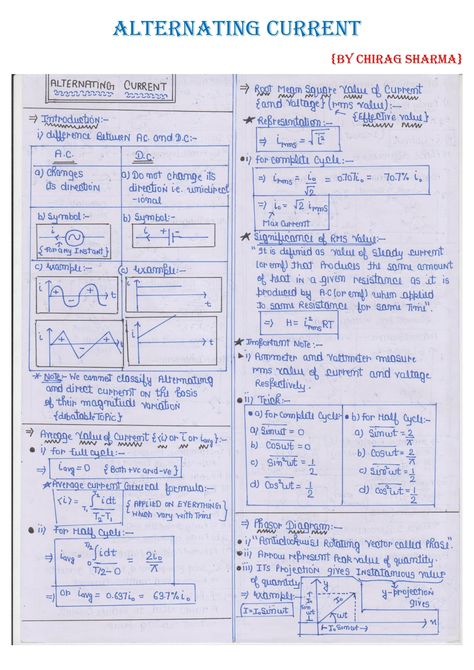 ALTERNATING CURRENT
{BY CHIRAG SHARMA}
ALTERNATING CURRENT
⇒ Introduction:-
i) difference Between A.C. and D.C:-
A.C.
D.C.
a) Changes
its direction
a) Do not change its
direction i.e. unidirect
-ional
b) Symbol:-
i
{for any Instant}
b) Symbol:-
i
+ -
c) Example:-
i + - + t
i + - t
c) Example:-
i t
i t
* Note:- We cannot classify Alternating
and direct current on the basis
of their magnitudal variation
{debatable Topic}
⇒ Average Value of Current {<i> or i̅ or iavg}:-
i) for full cycle:-
⇒ iavg = 0 {Both +ve and -ve}
★ Average current General formula:-
<i> = ∫idt / T2-T1
T2
T1
{APPLIED ON EVERYTHING
which vary with Time}
ii) For Half Cycle:-
⇒ iavg = ∫idt / T/2-0 = 2i₀/π
T/2
0
⇒ or iavg = 0.637i₀ = 63.7% i₀
⇒ Root Mean Square Value of Current
{and Voltage} (rms value):-
{Effective value}
★ Representation:-
⇒ irms = √i̅²
i) For complete Cycle:-
⇒ irms = i₀/√2 = 0.707i₀ = 70.7% i₀
⇒ i₀ = √2 irms
Max Current
★ Significance of RMS Value:-
"It is defined as value of steady current
(or emf) that Produces the same amount
of heat in a given resistance as it is
produced by A.C (or emf) when applied
to same Resistance for same Time".
⇒ H = i²rms RT
★ Important Note:-
i) Ammeter and Voltmeter measure
rms value of current and voltage
Respectively.
ii) Trick:-
a) for Complete Cycle:-
a) Sinωt = 0
b) Cosωt = 0
c) Sin²ωt = 1/2
d) Cos²ωt = 1/2
b) For Half Cycle:-
a) Sinωt = 2/π
b) Cosωt = 2/π
c) Sin²ωt = 1/2
d) Cos²ωt = 1/2
⇒ Phasor Diagram:-
i) "Anticlockwise Rotating Vector called Phase".
ii) Arrow represent Peak value of quantity.
iii) Its Projection gives Instataneous Value
of quantity
⇒ Example:-
I = I₀Sinωt
y
I₀
ωt
x
y-projection
gives